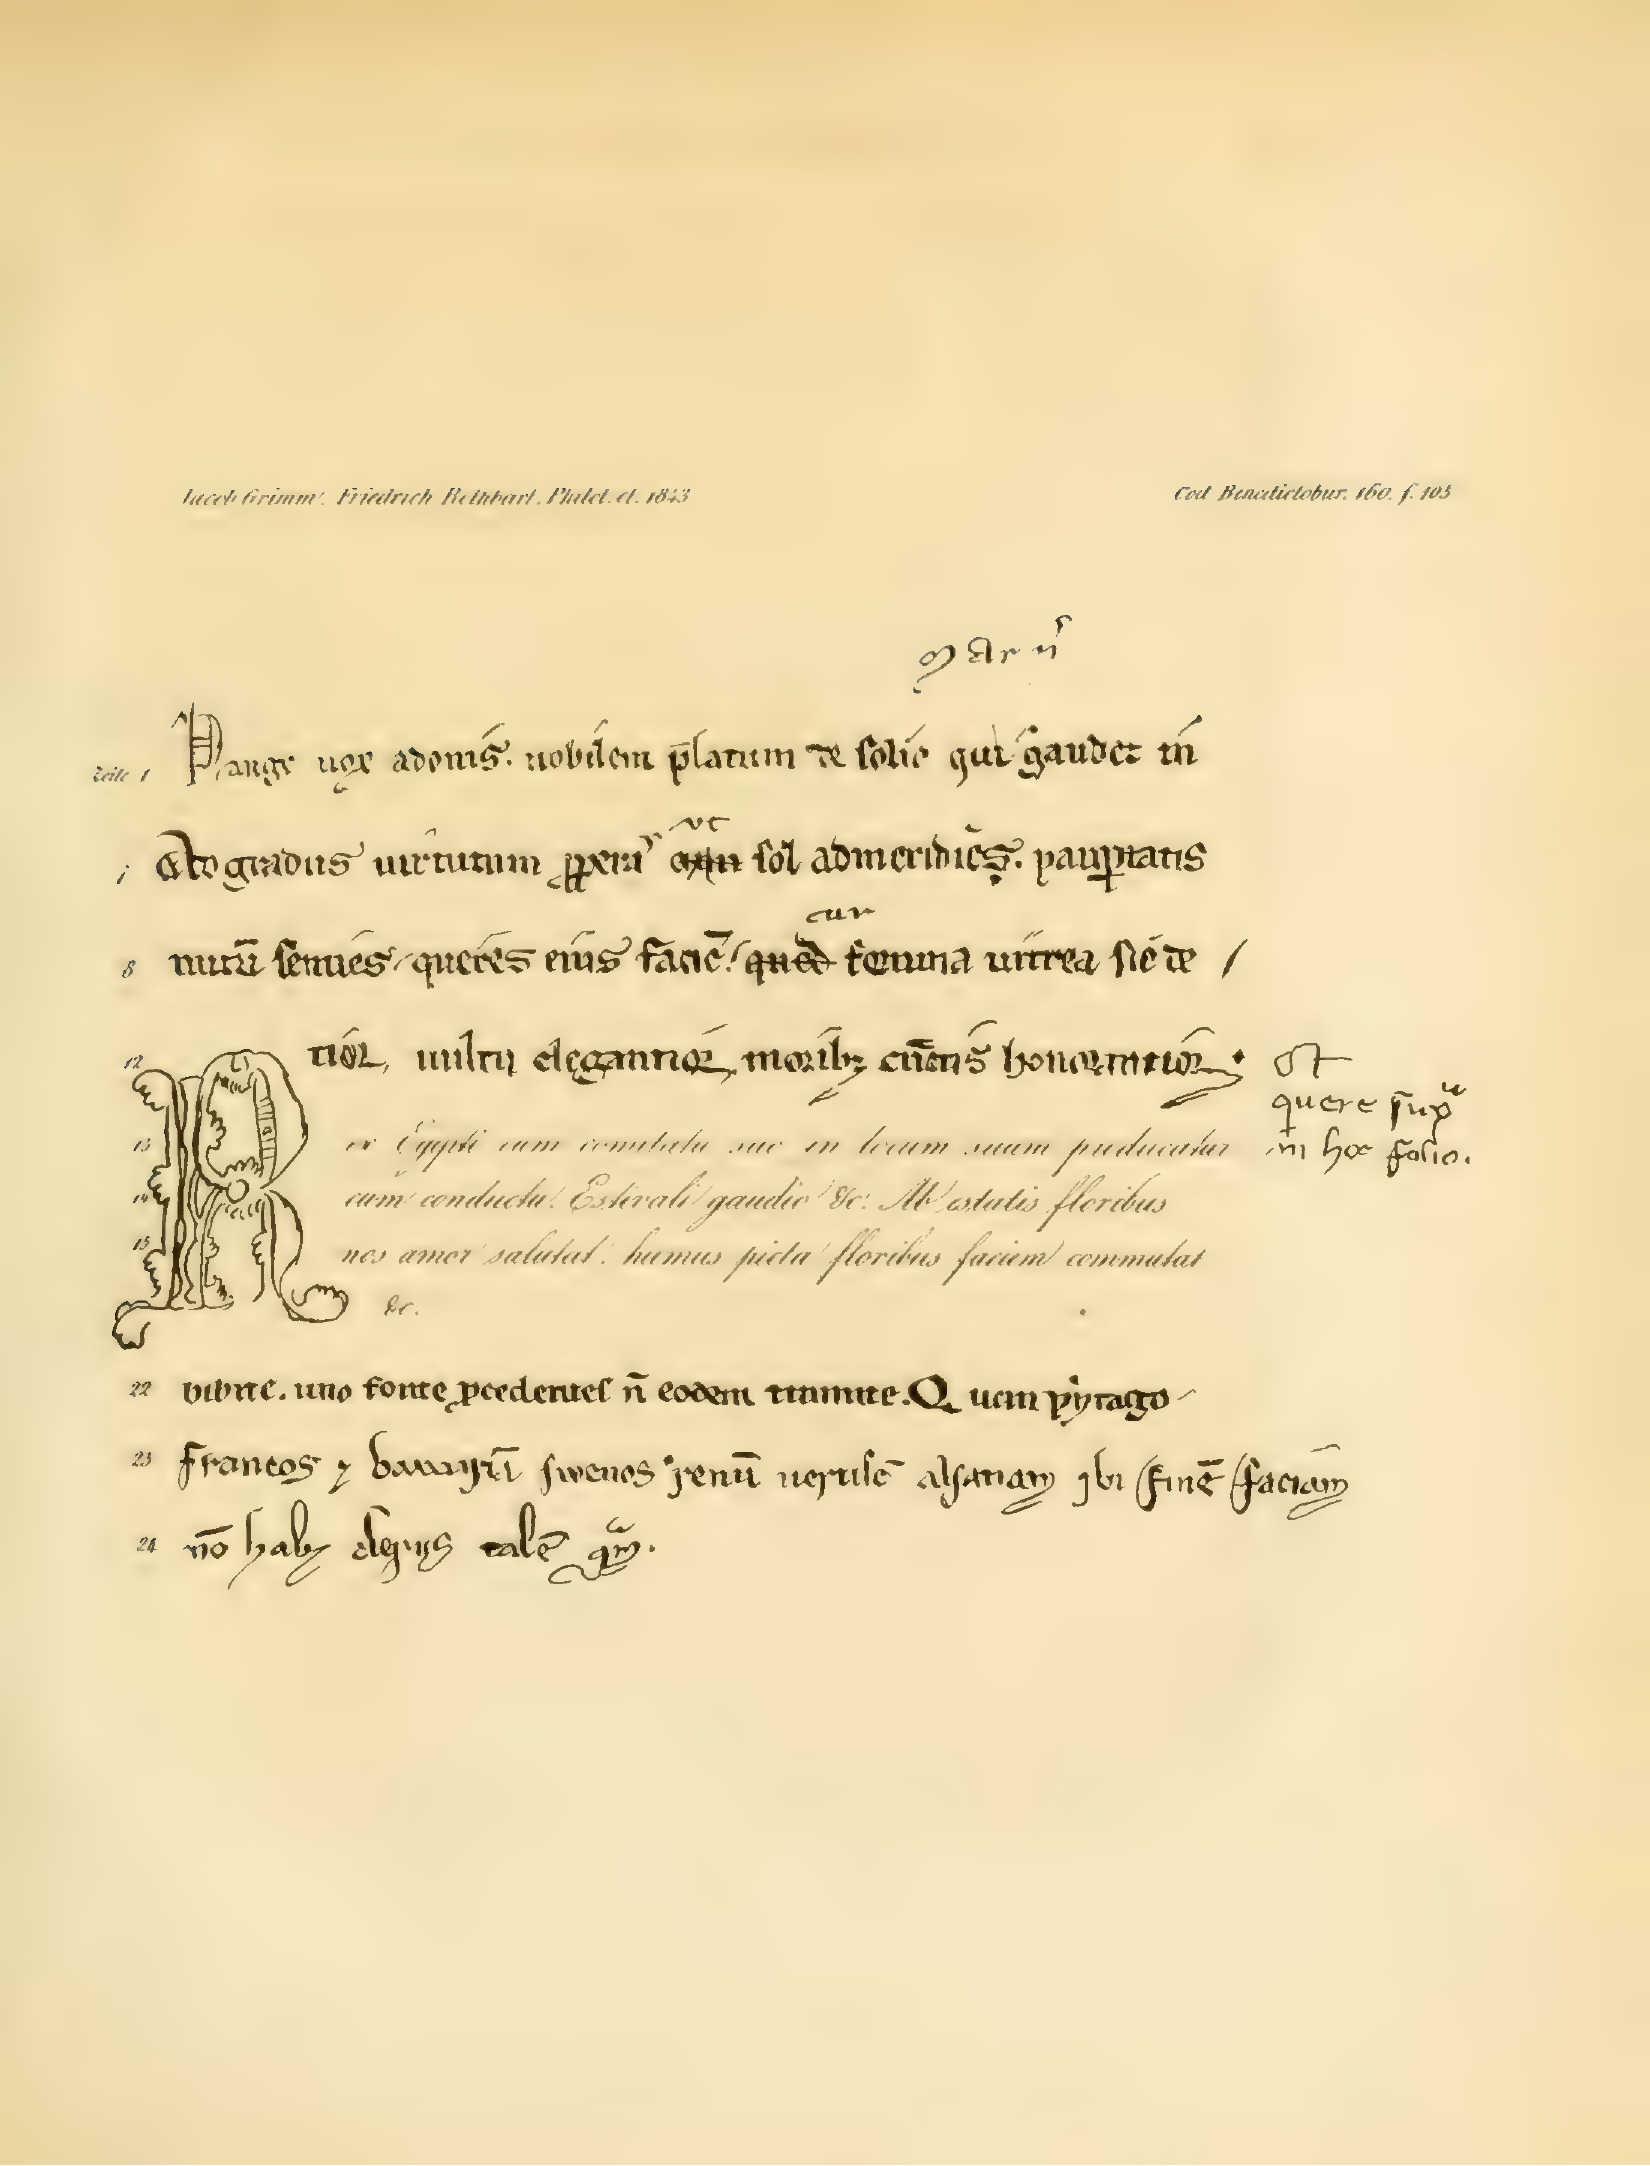 Iacob Grimm. Friedrich Rothbart. Philol. et. 1843
Cod Benedictobur. 160. f. 105
Marnˢ
Zeile 1 Pange uox adonis. nobilem p̄latum de solio qui gaudet in
gradus uirtutum sol ad meridies. paup̱tatis
ut
8 nutū senties queres eius faciē! quod fortuna uitrea sic te /
cur
12 tior, uultu elegantior, morib; cūctis honoratior.
quere sup̱
in hoc folio.
13 ex Egypti cum comitatu suo in locum suum producatur
14 cum conductu. Estivali gaudio &c: Ab estatis floribus
15 nos amor salutat. humus picta floribus faciem commutat
&c.
22 bibite. uno fonte p̱cedentes n̄ eodem tramite. Quam pytago
23 francos ⁊ swevos renū alsatiam ibi finē faciam
24 nō talē